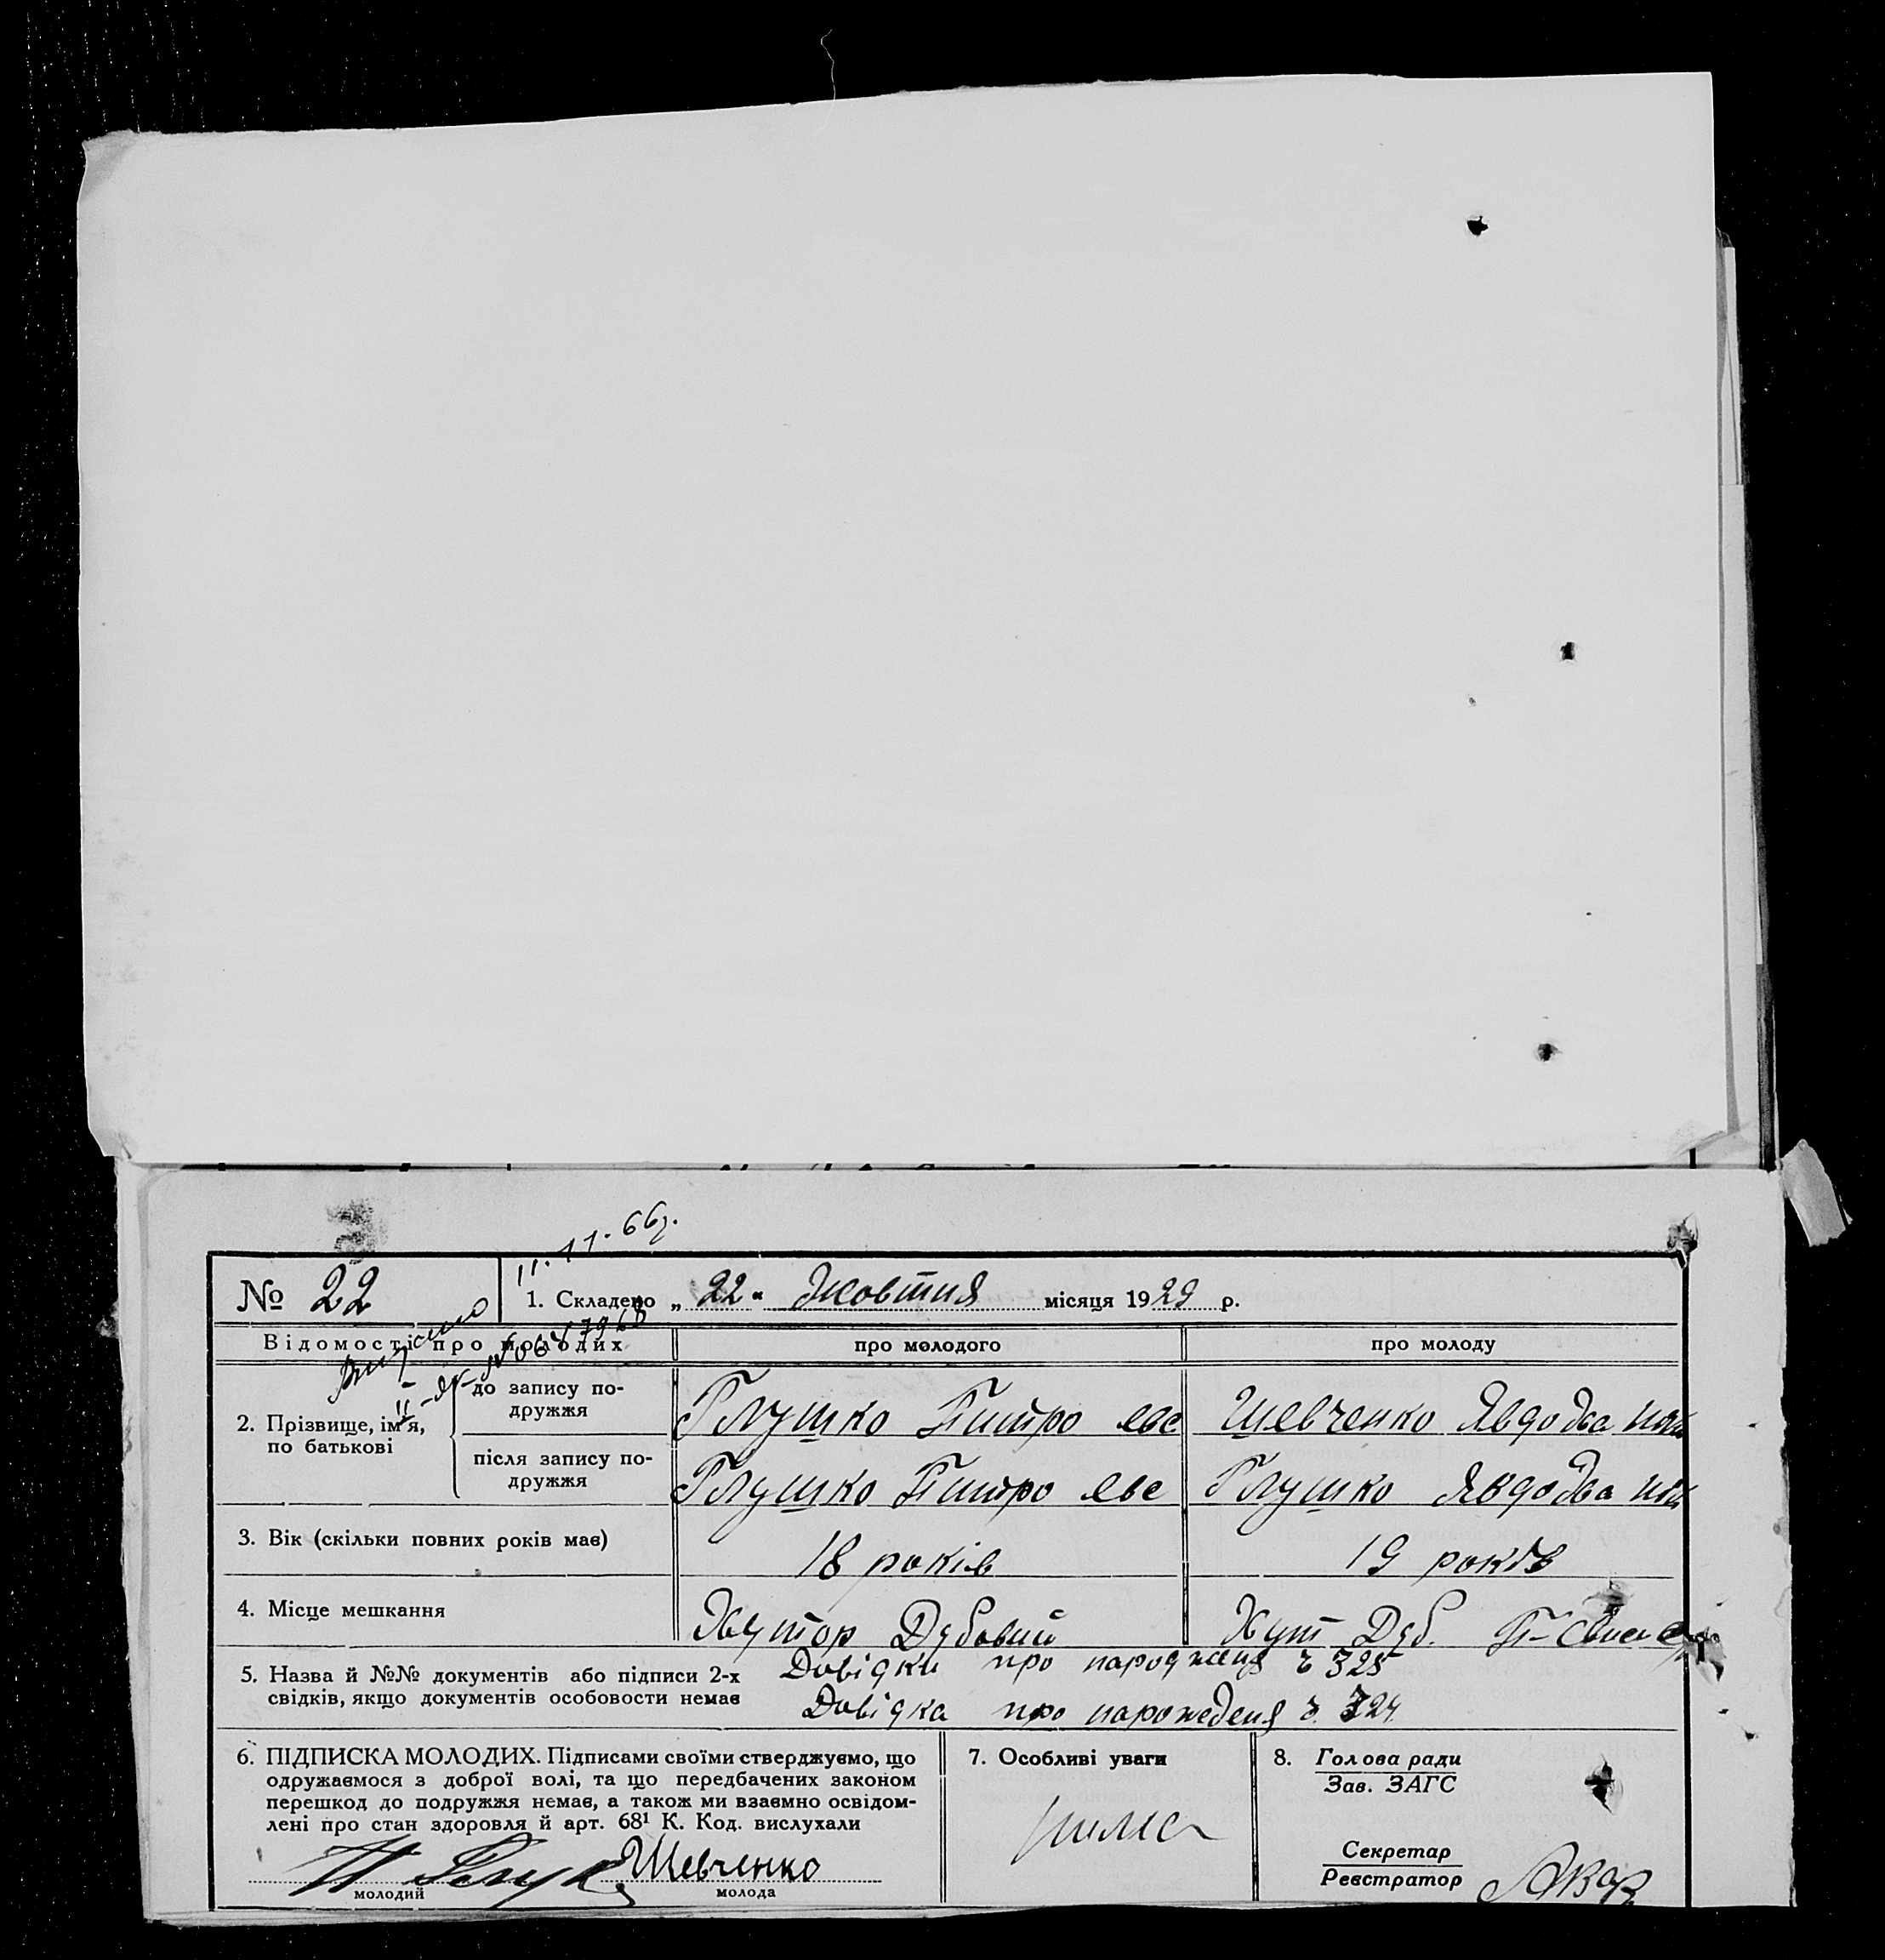 11.11.66г.
№ 22
1. Складено „22“ Жовтня місяця 1929 р.
Відомості про молодих
про молодого
про молоду
2. Прізвище, ім'я, по батькові
до запису по-
дружжя
Глушко Питро Евс
Шевченко Явдовка
після запису по-
дружжя
Глушко Питро Евс
Глушко Явдовка
3. Вік (скільки повних років має)
18 років
19 років
4. Місце мешкання
Хутор Дубовий
Хут Дуб.
5. Назва й №№ документів або підписи 2-х
свідків, якщо документів особовости немає
Довідки про народженя ч 325
Довідка про нарожденя ч. 324
6. ПІДПИСКА МОЛОДИХ. Підписами своїми стверджуємо, що
одружаємося з доброї волі, та що передбачених законом
перешкод до подружжя немає, а також ми взаємно освідом-
лені про стан здоровля й арт. 68¹ К. Код. вислухали
Шевченко
молодий
молода
7. Особливі уваги
нима
8. Голова ради
Зав. ЗАГС
Секретар
Реєстратор